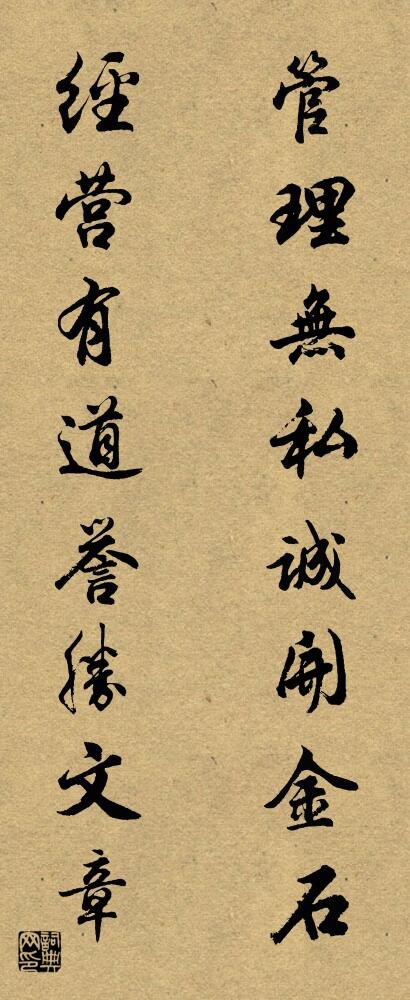 管理無私誠開金石
經营有道誉勝文章
詞典网印